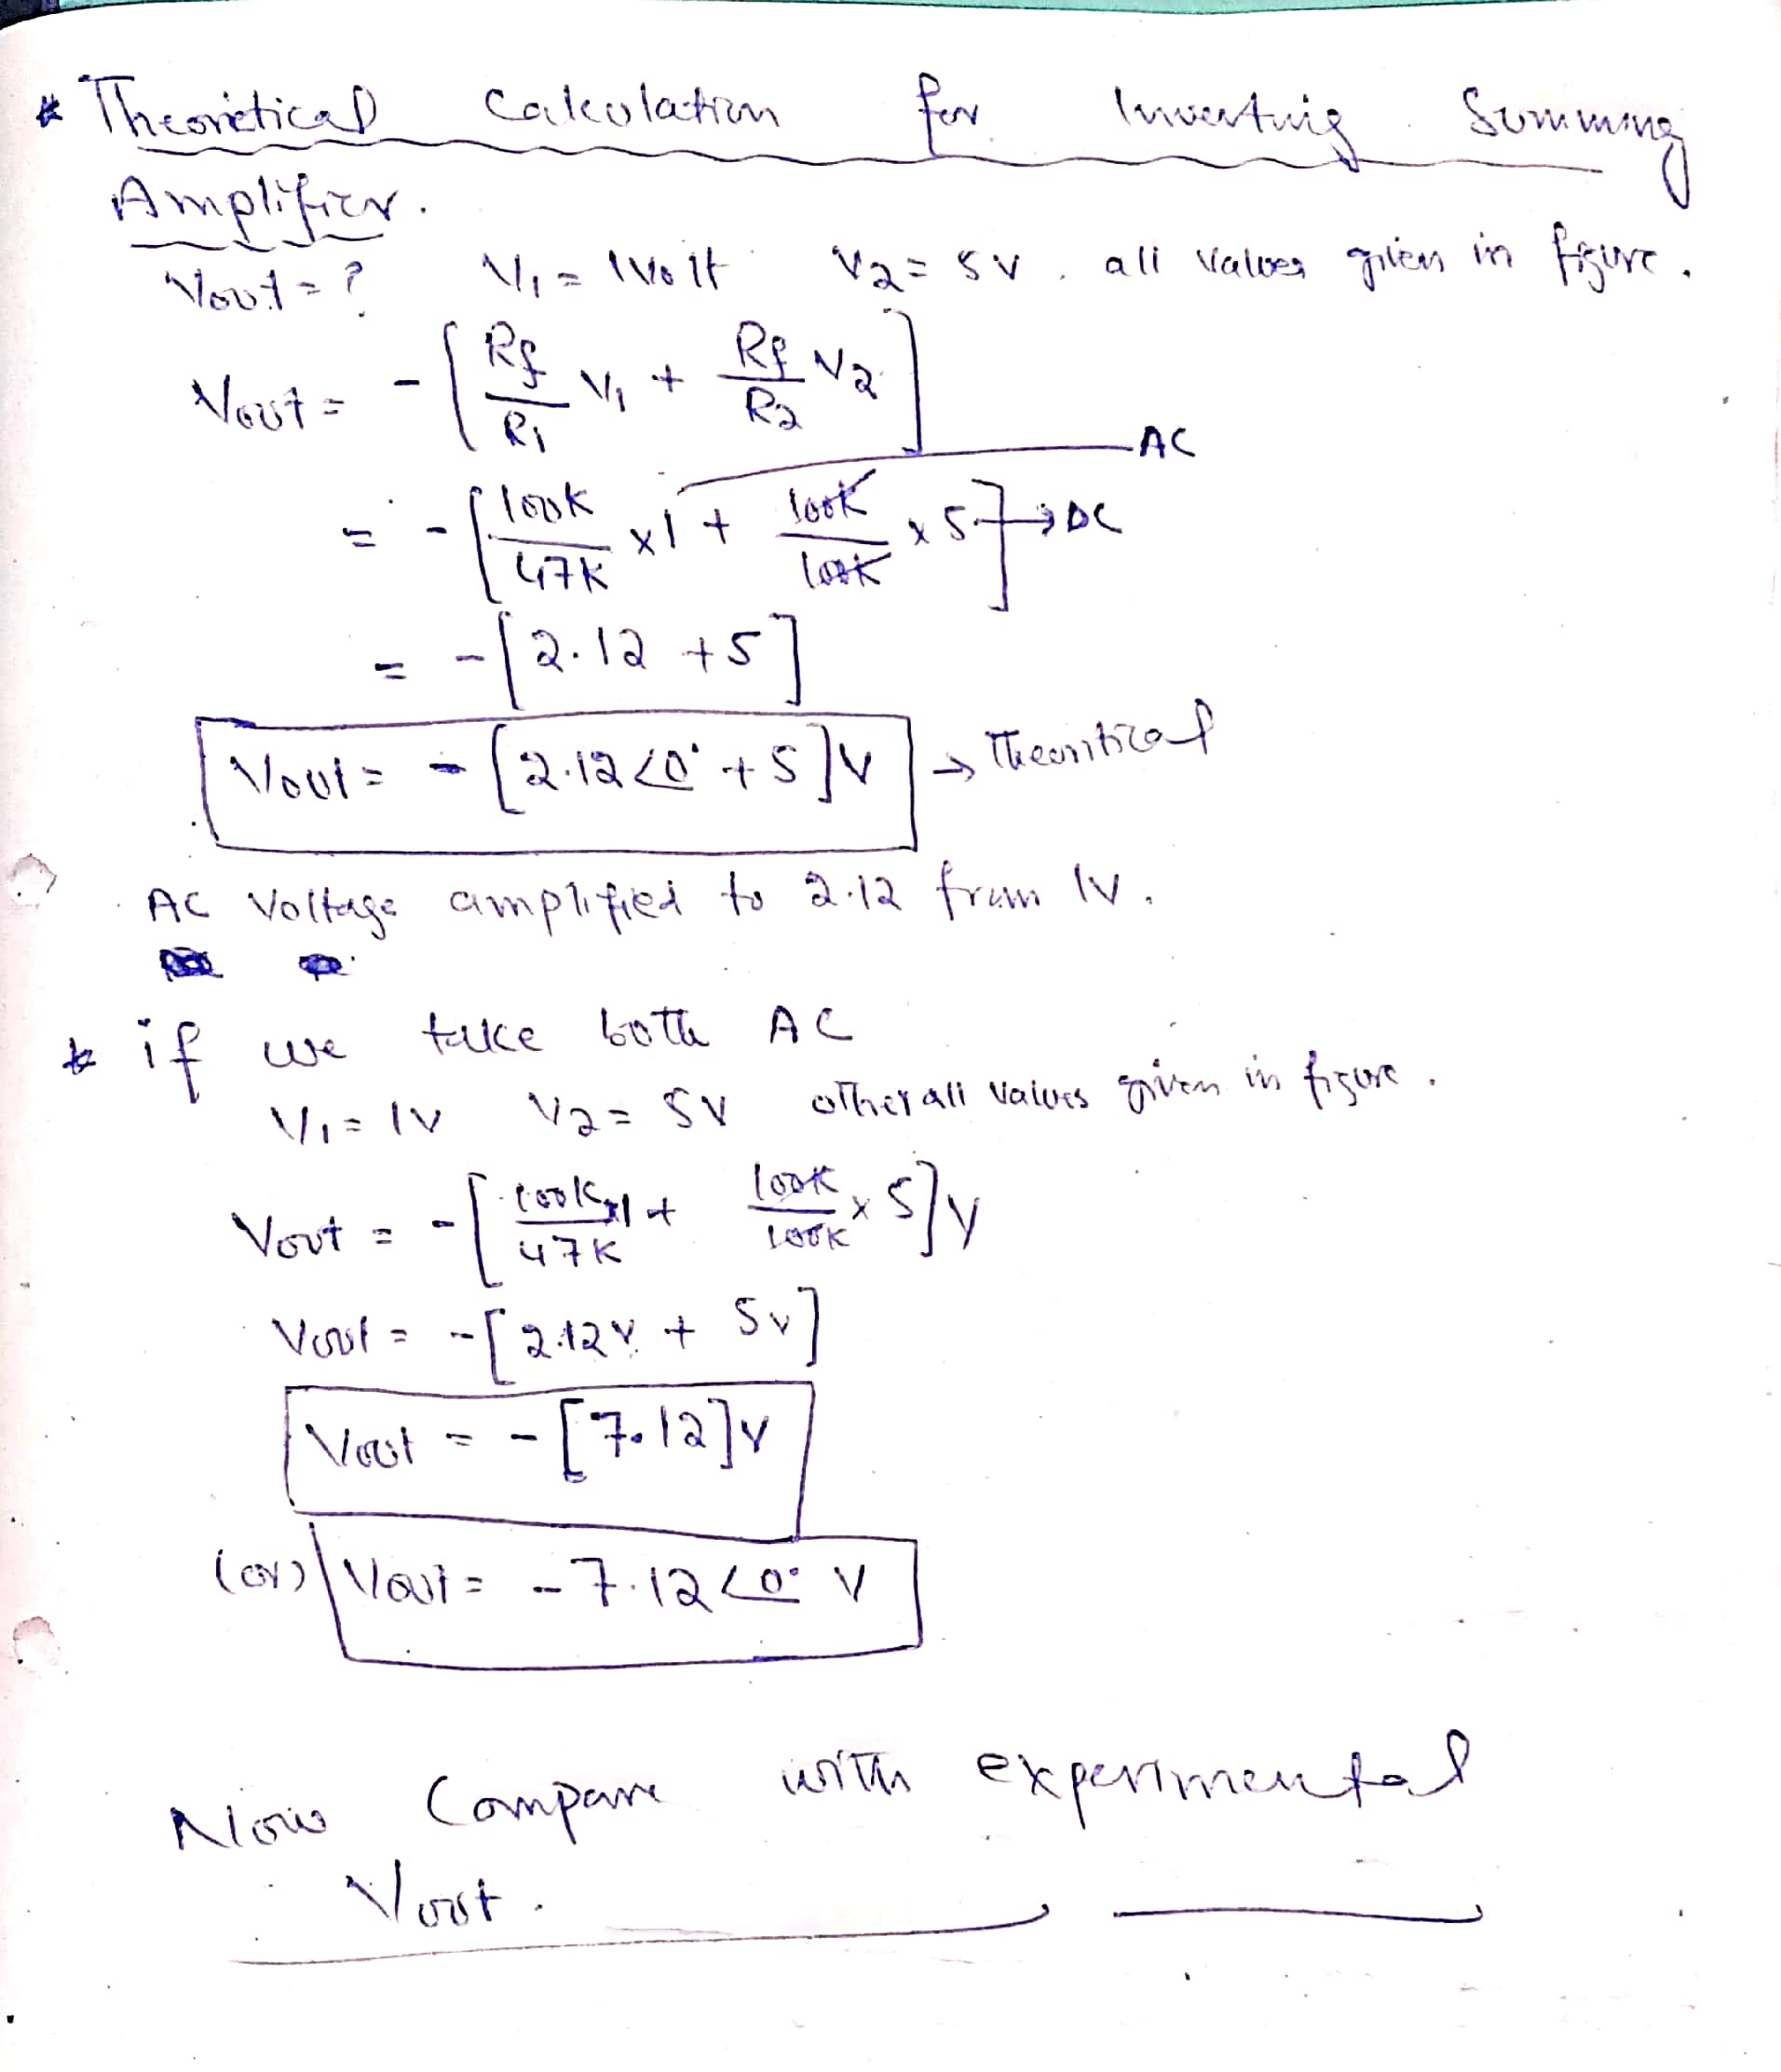 * Theoritical Calculation for Inverting Summing
Amplifier.
Vout = ? V1 = 1Volt V2 = 5V . all values given in figure.
Vout = - [ Rf/R1 V1 + Rf/R2 V2 ]
= - [ 100K/47K x1 + 100K/100K x 5 ] → DC
AC
= - [ 2.12 + 5 ]
Vout = - [ 2.12 ∠0° + 5 ] V → Theoritical
AC Voltage amplified to 2.12 from 1V.
* if we take both AC
V1 = 1V V2 = 5V other all values given in figure.
Vout = - [ 100K x1/47K + 100K/100K x 5 ] V
Vout = - [ 2.12V + 5V ]
Vout = - [ 7.12 ] V
(or) Vout = - 7.12 ∠0° V
Now Compare with experimental
Vout.